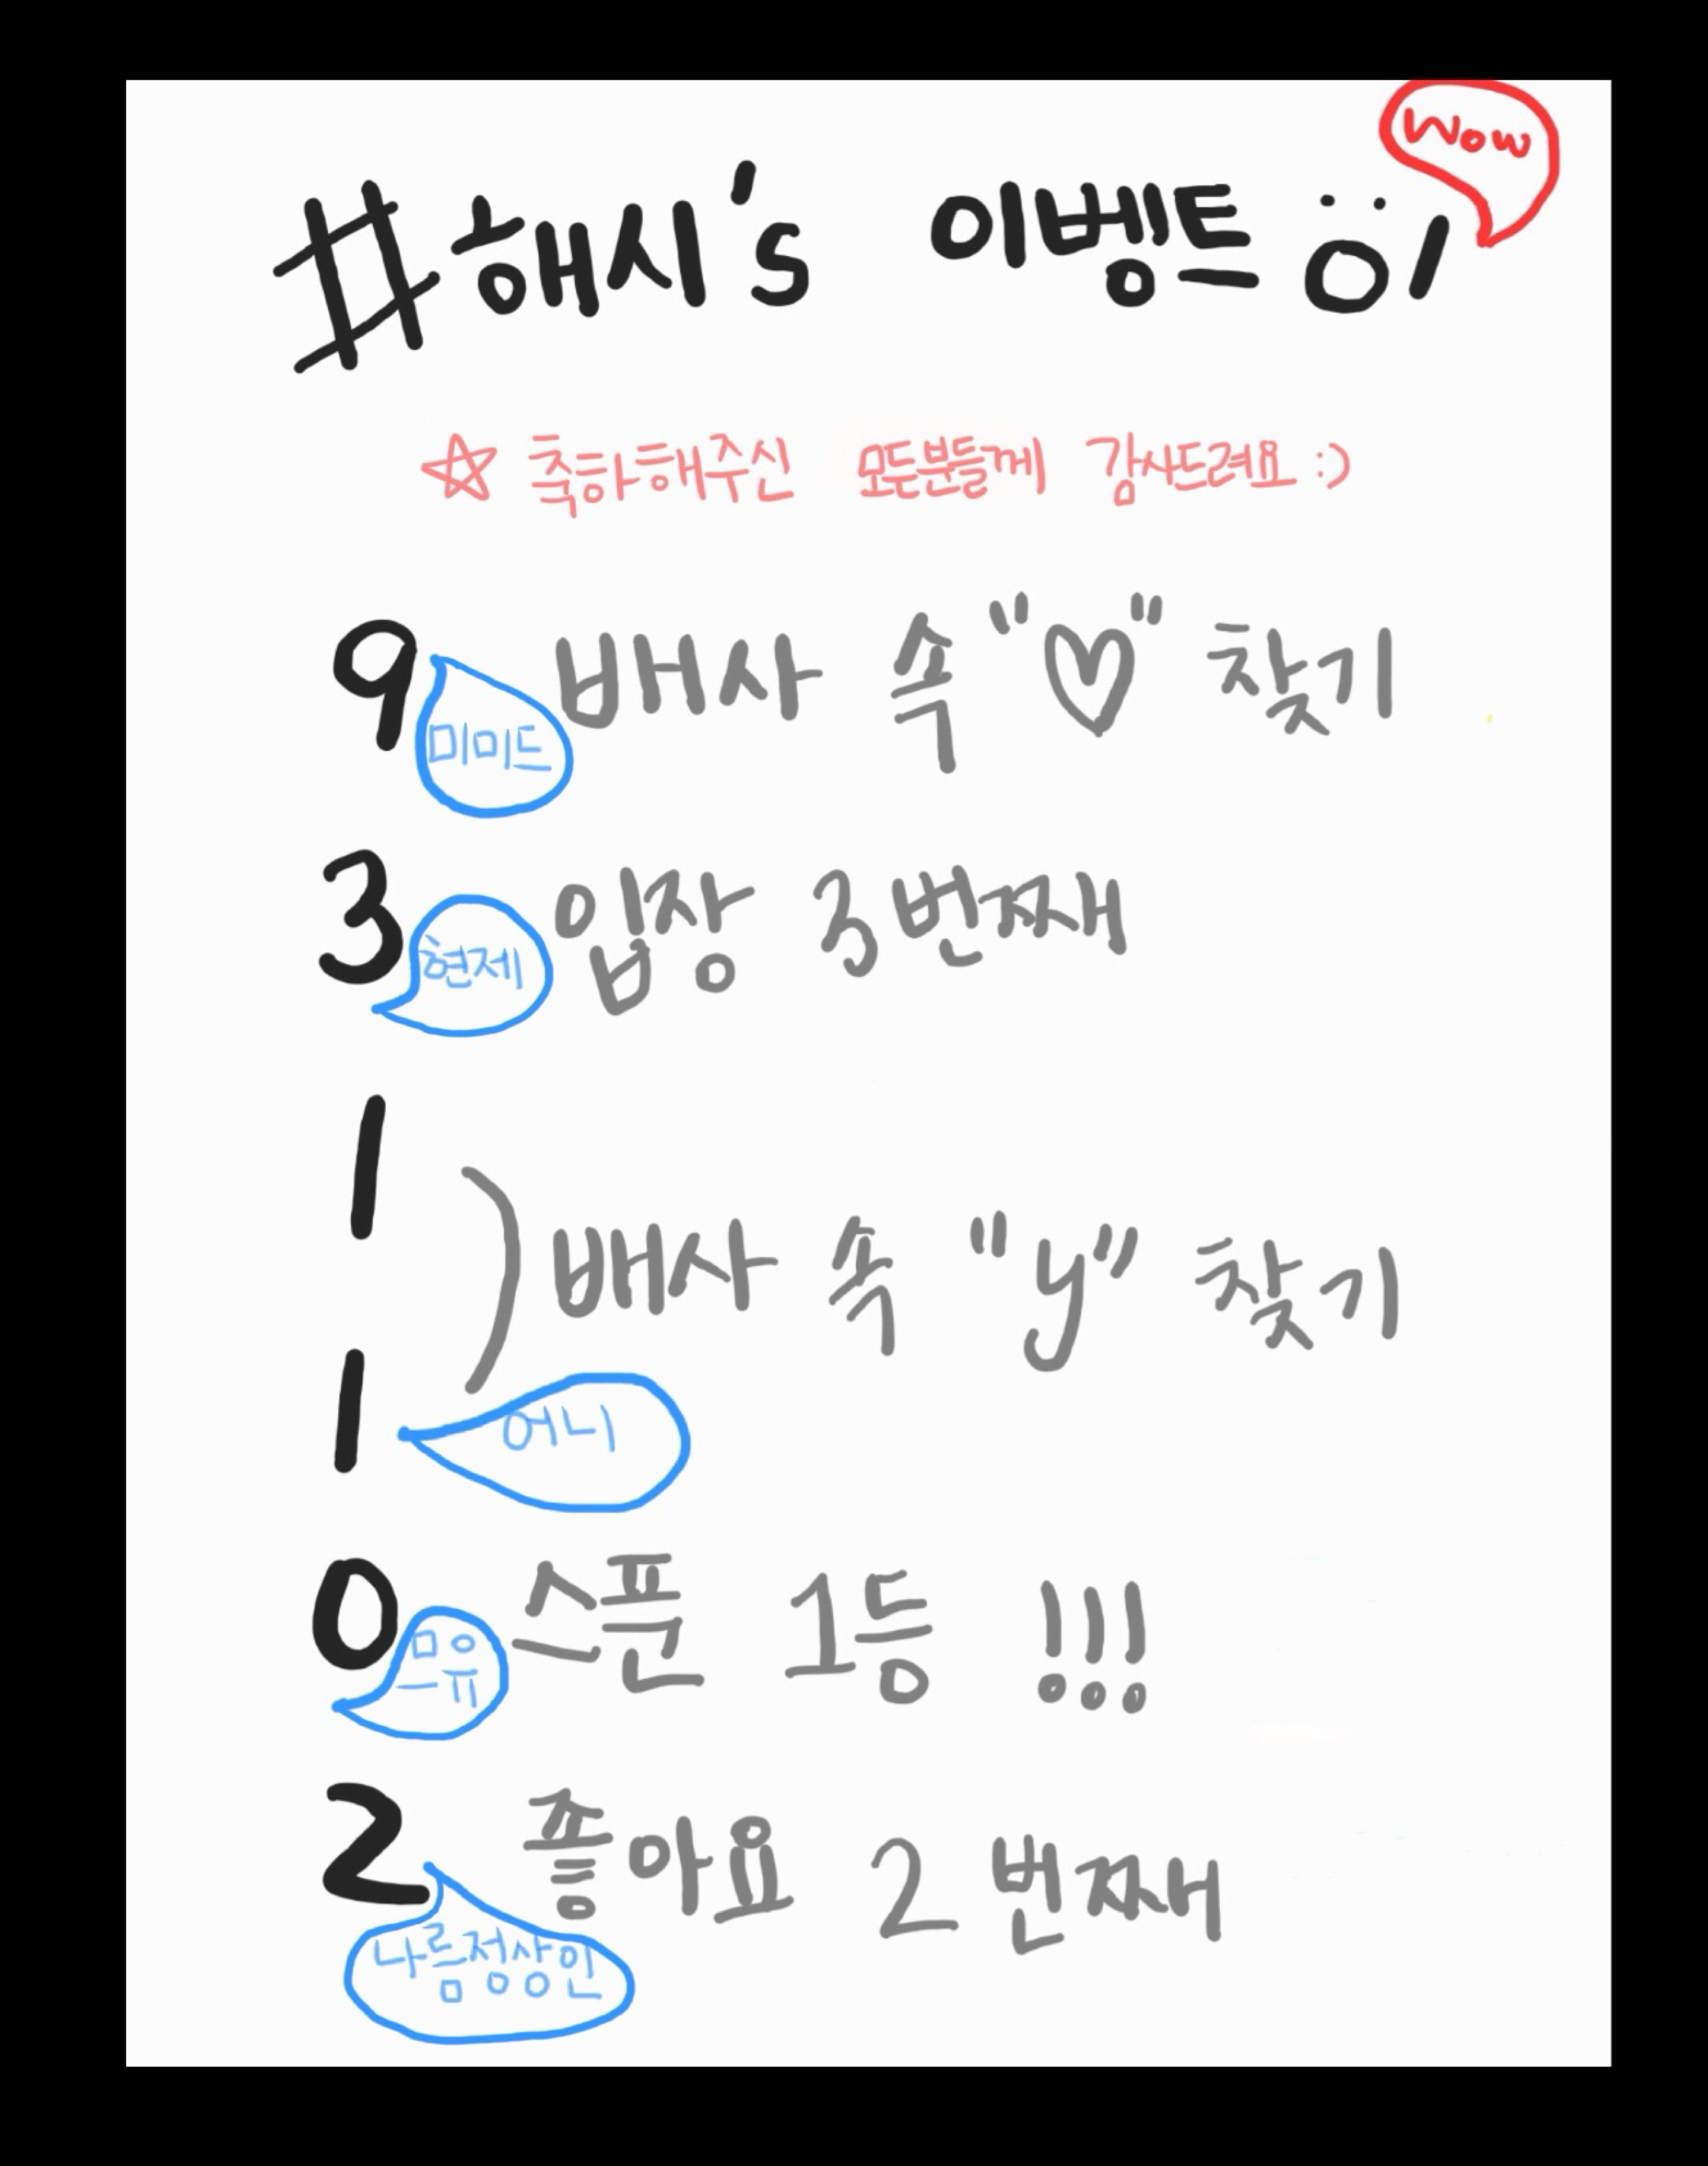 Wow
#해시's 이벤트 ö!
☆ 축하해주신 모든분들께 감사드려요 :)
9 배사 속 "♡" 찾기
미미드
3 입장 3번째
현제
1
배사 속 "y" 찾기
1
어니
0 스푼 1등 !!!
므유
2 좋아요 2 번째
나름정상인